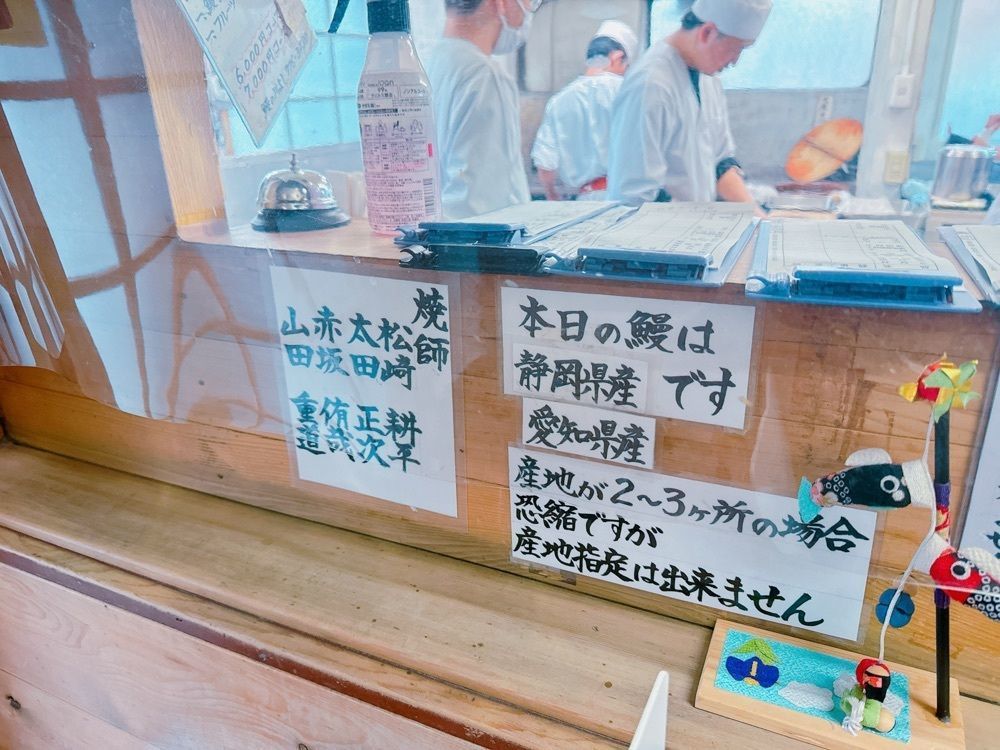 6,000円コー
7,000円コー
99%
焼師
松崎 耕平
太田 正次
赤坂 侑哉
山田 重道
本日の鰻は
静岡県産 です
愛知県産
産地が2～3ヶ所の場合
恐縮ですが
産地指定は出来ません